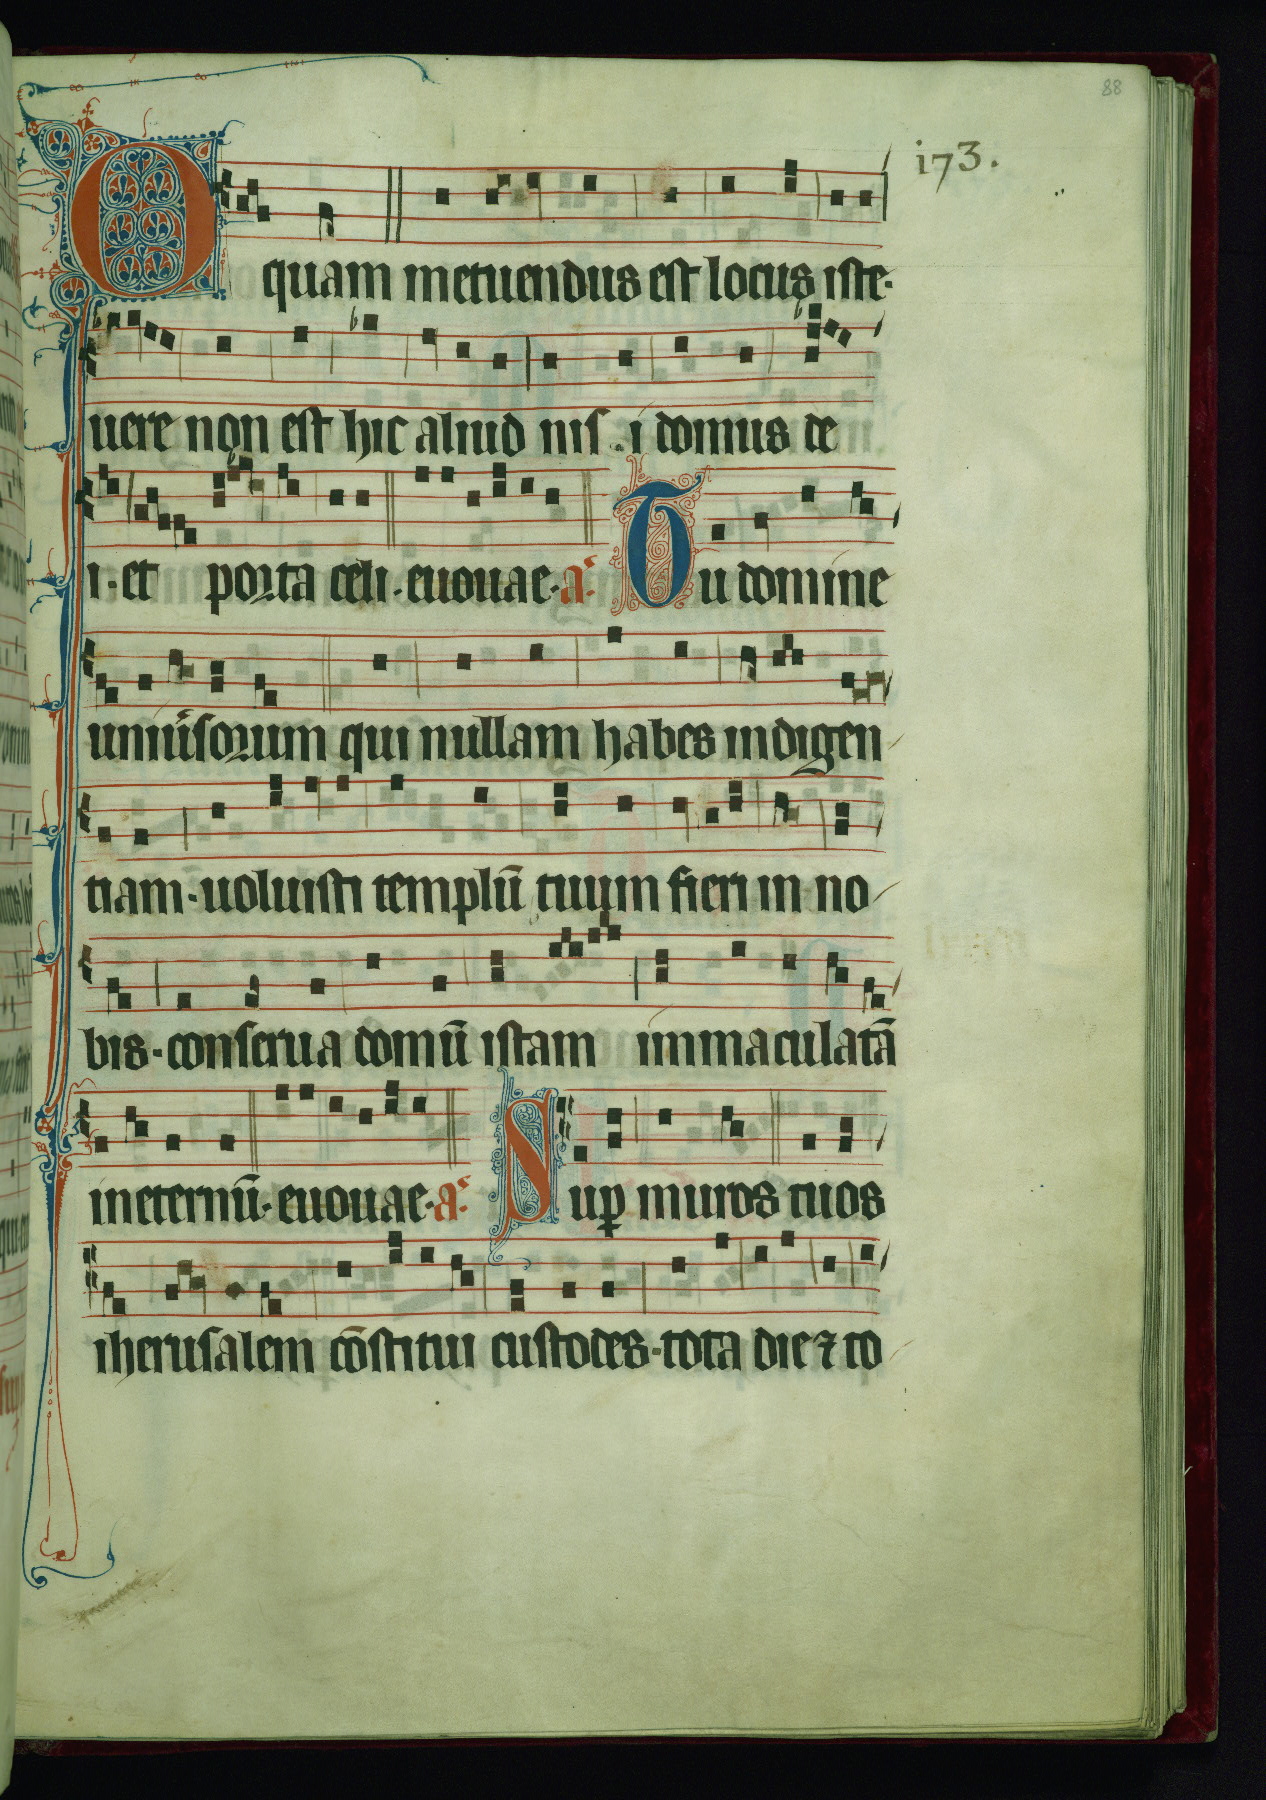 88
i73.
O quam metuendus est locus iste·
uere non est hic aliud nis i domus de
i · et porta celi · euouae · a· Tu domine
uniu͛sorum qui nullam habes indigen
tiam · uoluisti templū tuum fieri in no
bis · conserua domū istam immaculatā
in eternū · euouae · a· Suꝑ muros tuos
iherusalem cōstitui custodes · tota die ⁊ to